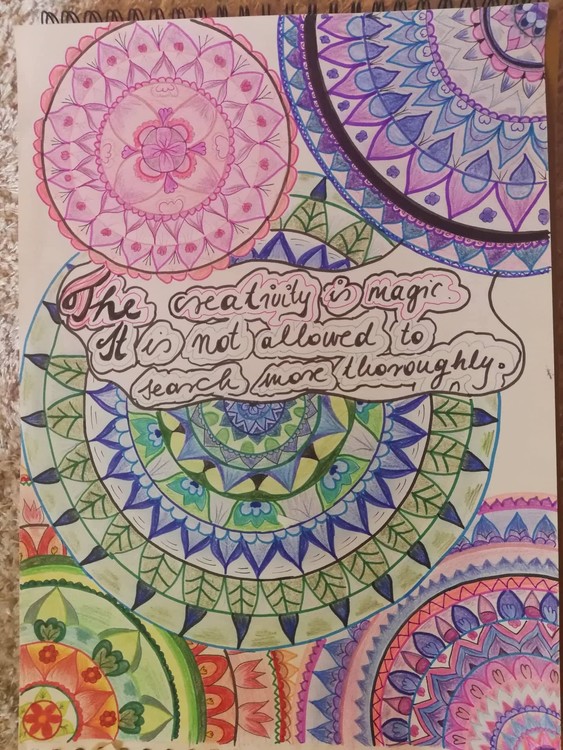 The creativity is magic.
It is not allowed to
search more thoroughly.